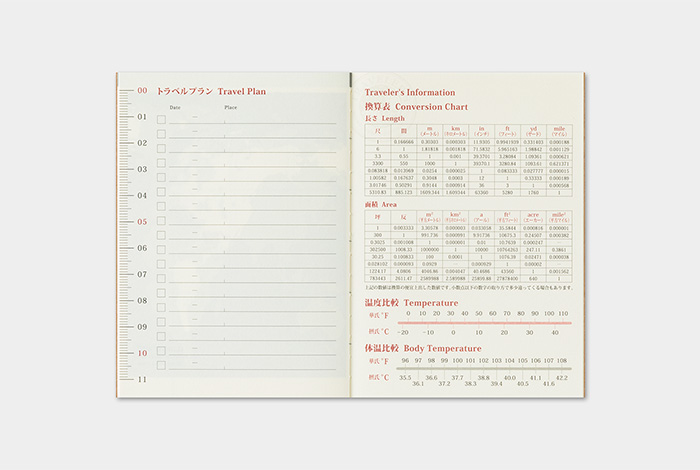 00 トラベルプラン Travel Plan
Date Place
01
02
03
04
05
06
07
08
09
10
11
Traveler's Information
換算表 Conversion Chart
長さ Length
尺 間 m km in ft yd mile
(メートル) (キロメートル) (インチ) (フィート) (ヤード) (マイル)
1 0.166666 0.30303 0.000303 11.9305 0.9941939 0.331403 0.000188
6 1 1.81818 0.001818 71.5832 5.965163 1.98842 0.001129
3.3 0.55 1 0.001 39.3701 3.28084 1.09361 0.000621
3300 550 1000 1 39370.1 3280.84 1093.61 0.621371
0.083818 0.013969 0.0254 0.000025 1 0.083333 0.027777 0.000015
1.00582 0.167637 0.3048 0.0003 12 1 0.33333 0.000189
3.01746 0.50291 0.9144 0.000914 36 3 1 0.000568
5310.83 885.123 1609.344 1.609344 63360 5280 1760 1
面積 Area
坪 反 m² km² a ft² acre mile²
(平方メートル) (平方キロメートル) (アール) (平方フィート) (エーカー) (平方マイル)
1 0.003333 3.30578 0.000003 0.033058 35.5844 0.000816 0.000001
300 1 991.736 0.000991 9.91736 10675.3 0.24507 0.000382
0.3025 0.001008 1 0.000001 0.01 10.7639 0.000247
302500 1008.33 1000000 1 10000 10764263 247.11 0.3861
30.25 0.100833 100 0.0001 1 1076.39 0.02471 0.000038
1224.17 4.0806 4046.86 0.004047 40.4686 43560 1 0.001562
783443 2611.47 2589988 2.589988 25899.9 27878400 640 1
上記の数値は換算の便宜上出した数値です。小数点以下の数字の取り方で多少違ってくる場合もあります。
温度比較 Temperature
華氏 °F 0 10 20 30 40 50 60 70 80 90 100 110
摂氏 °C −20 −10 0 10 20 30 40
体温比較 Body Temperature
華氏 °F 96 97 98 99 100 101 102 103 104 105 106 107 108
摂氏 °C 35.5 36.6 37.7 38.8 40.0 41.1 42.2
36.1 37.2 38.3 39.4 40.5 41.6